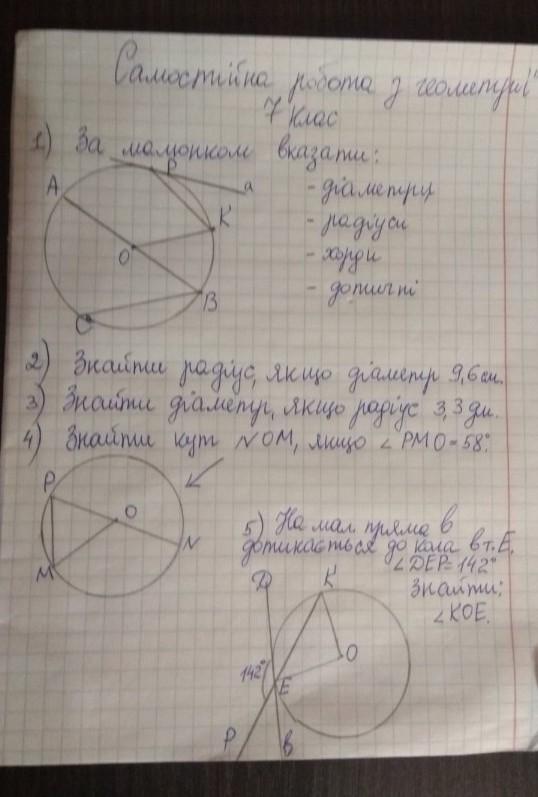 Самостійна робота з геометрії
7 клас
1) За малюнком вказати:
- діаметри
- радіуси
- хорди
- дотичні
A
P
a
K
O
B
C
2) Знайти радіус, якщо діаметр 9,6 см.
3) Знайти діаметр, якщо радіус 3,3 дм.
4) Знайти кут NOM, якщо ∠PMO=58°.
P
O
N
M
5) На мал. пряма в
дотикається до кола в т. E.
∠DEP=142°
Знайти:
∠KOE.
D
K
O
142°
E
P
в